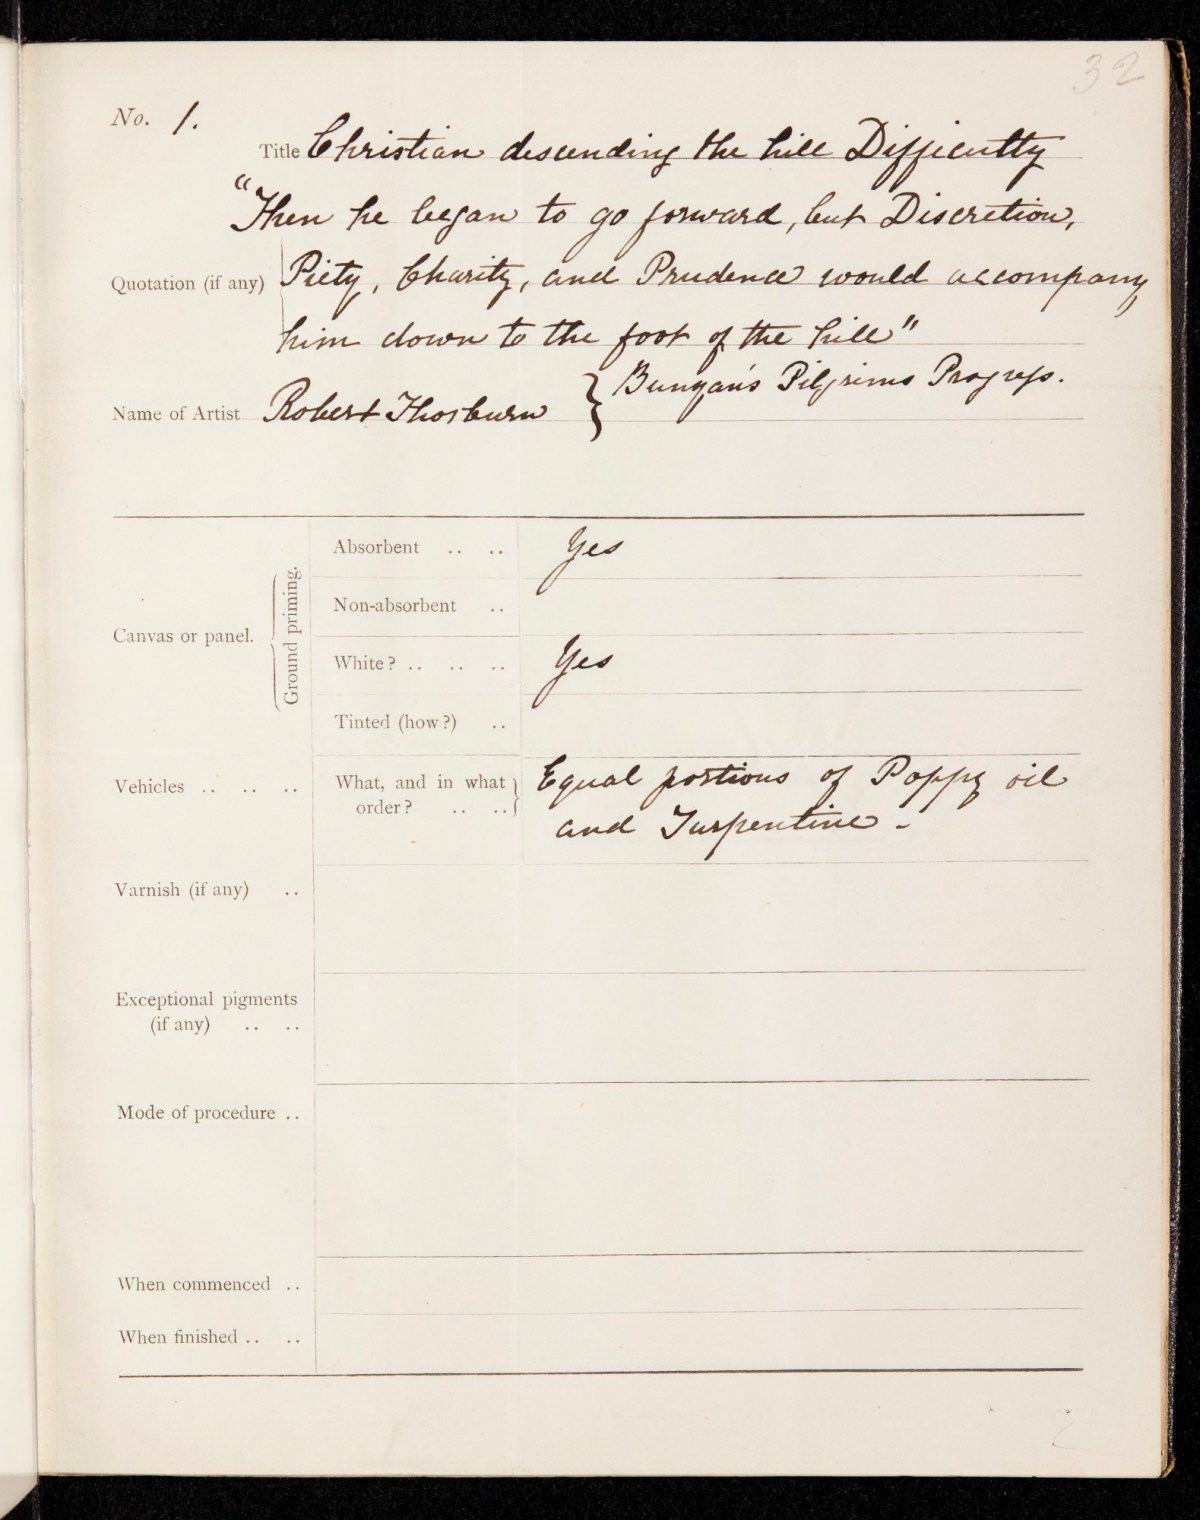 32
No. 1.
Title Christian descending the hill Difficulty
"Then he began to go forward, but Discretion,
Quotation (if any) Piety, Charity, and Prudence would accompany
him down to the foot of the hill"
Bunyan's Pilgrims Progress.
Name of Artist Robert Thorburn
Absorbent .. .. Yes
Non-absorbent ..
Canvas or panel. Ground priming.
White? .. .. .. Yes
Tinted (how?) ..
Vehicles .. .. .. What, and in what Equal portions of Poppy oil
order? .. .. and Turpentine -
Varnish (if any) ..
Exceptional pigments
(if any) .. ..
Mode of procedure ..
When commenced ..
When finished .. ..